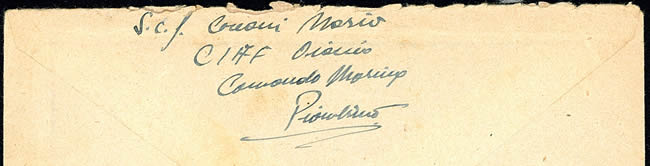 S.c.f. Conani Mario
CIAF
Comando Marina
Piombino